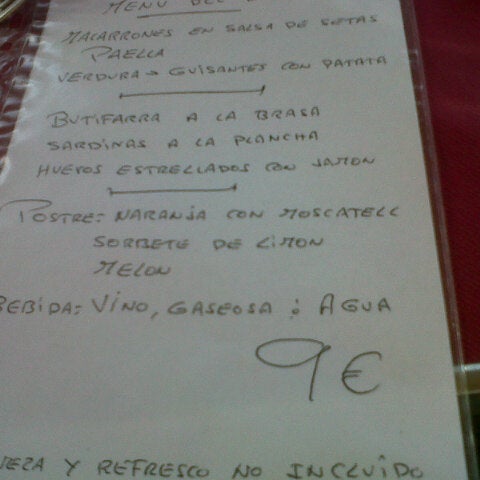 MENU DEL
MACARRONES EN SALSA DE SETAS
PAELLA
VERDURA → GUISANTES CON PATATA
BUTIFARRA A LA BRASA
SARDINAS A LA PLANCHA
HUEVOS ESTRELLADOS CON JAMON
POSTRE: NARANJA CON MOSCATELL
SORBETE DE LIMON
MELON
BEBIDA: VINO, GASEOSA ó AGUA
9€
Y REFRESCO NO INCLUÍDO